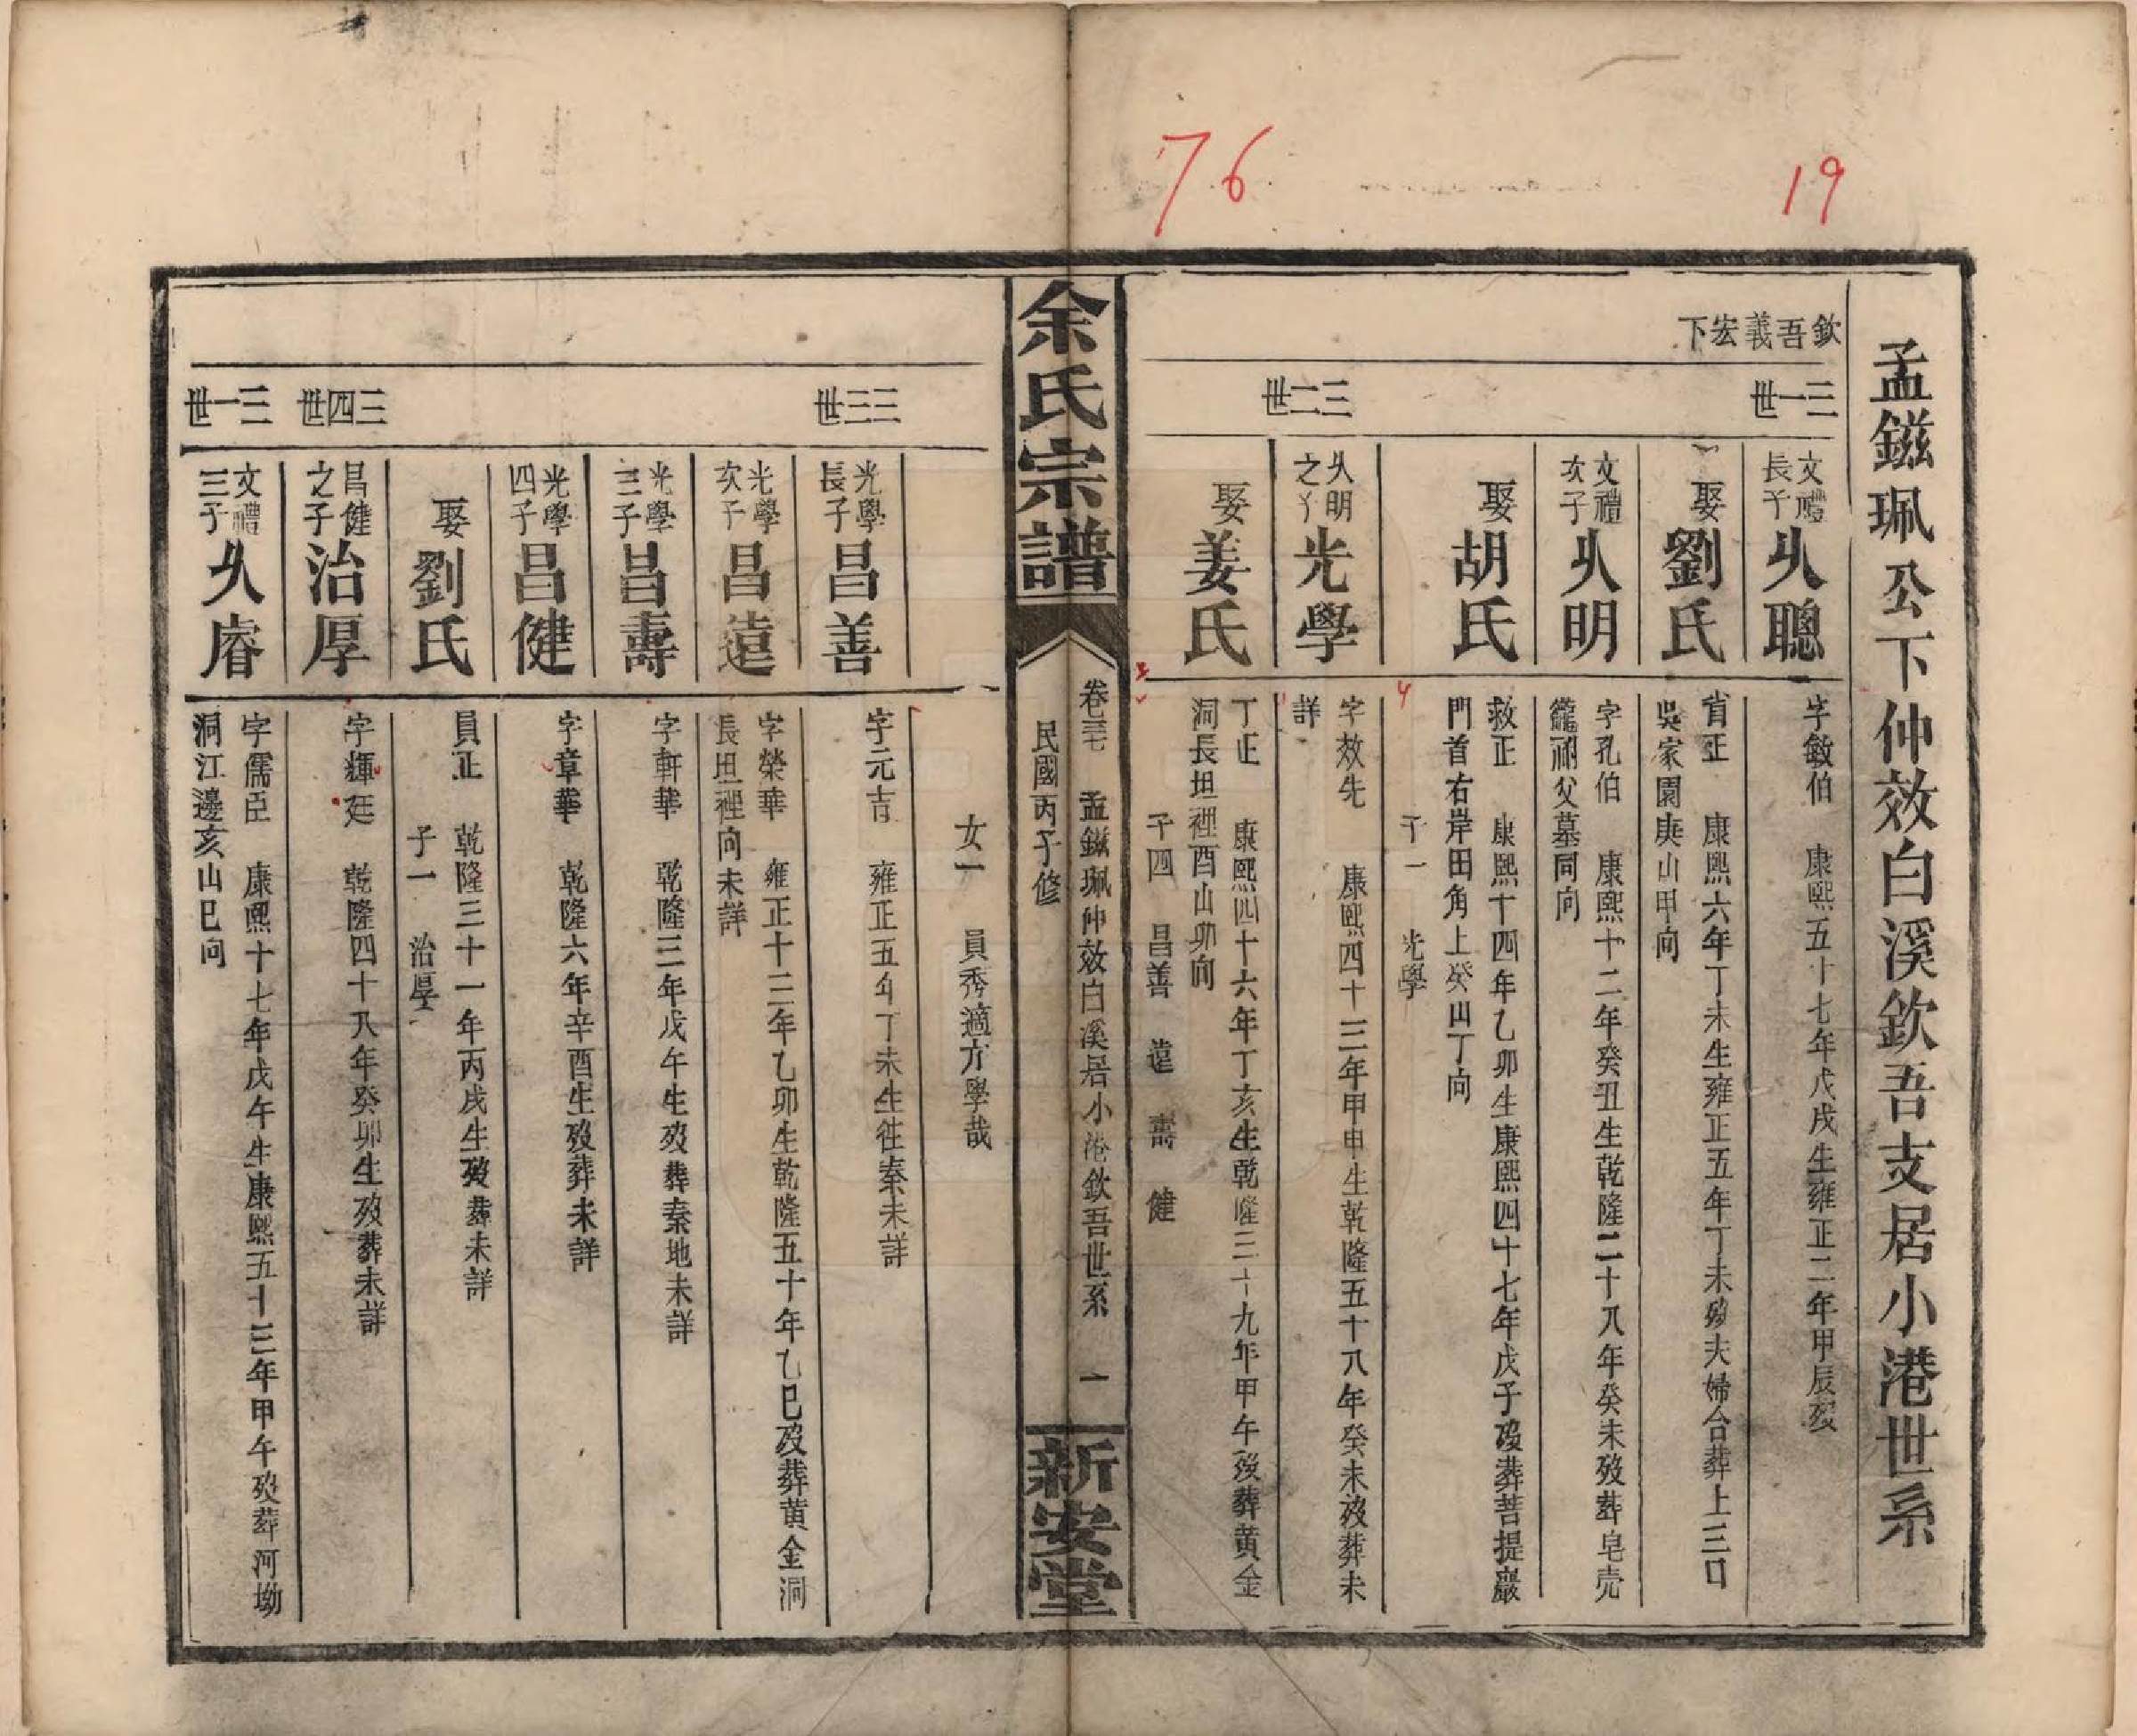 76
19
孟鎡珮公下仲效白溪欽吾支居小港世系
欽吾義宏下
三一世
文禮長子
乆聰
字敏伯 康熙五十七年戊戌生雍正二年甲辰歿
娶劉氏
省正 康熙六年丁未生雍正五年丁未歿夫婦合葬上三口
吳家園庚山甲向
文禮次子
乆明
字孔伯 康熙十二年癸丑生乾隆二十八年癸未歿葬皂壳
籠祔父墓同向
娶胡氏
救正 康熙十四年乙卯生康熙四十七年戊子歿葬菩提巖
門首右岸田角上癸山丁向
子一 光學
三二世
乆明之子
光學
字效先 康熙四十三年甲申生乾隆五十八年癸未歿葬未
詳
娶姜氏
丁正 康熙四十六年丁亥生乾隆三十九年甲午歿葬黄金
洞長坦裡酉山卯向
子四 昌善 遠 壽 健
余氏宗譜
卷三七 孟鎡珮仲效白溪居小港欽吾世系 一
民國丙子修
新安堂
女一 員秀適方學哉
三三世
光學長子
昌善
字元吉 雍正五年丁未生往秦未詳
光學次子
昌遠
字榮華 雍正十三年乙卯生乾隆五十年乙巳歿葬黄金洞
長坦裡向未詳
光學三子
昌壽
字軒華 乾隆三年戊午生歿葬秦地未詳
光學四子
昌健
字章華 乾隆六年辛酉生歿葬未詳
娶劉氏
員正 乾隆三十一年丙戌生歿葬未詳
子一 治厚
三四世
昌健之子
治厚
字輝廷 乾隆四十八年癸卯生歿葬未詳
三一世
文禮三子
乆睿
字儒臣 康熙十七年戊午生康熙五十三年甲午歿葬河坳
洞江邊亥山巳向